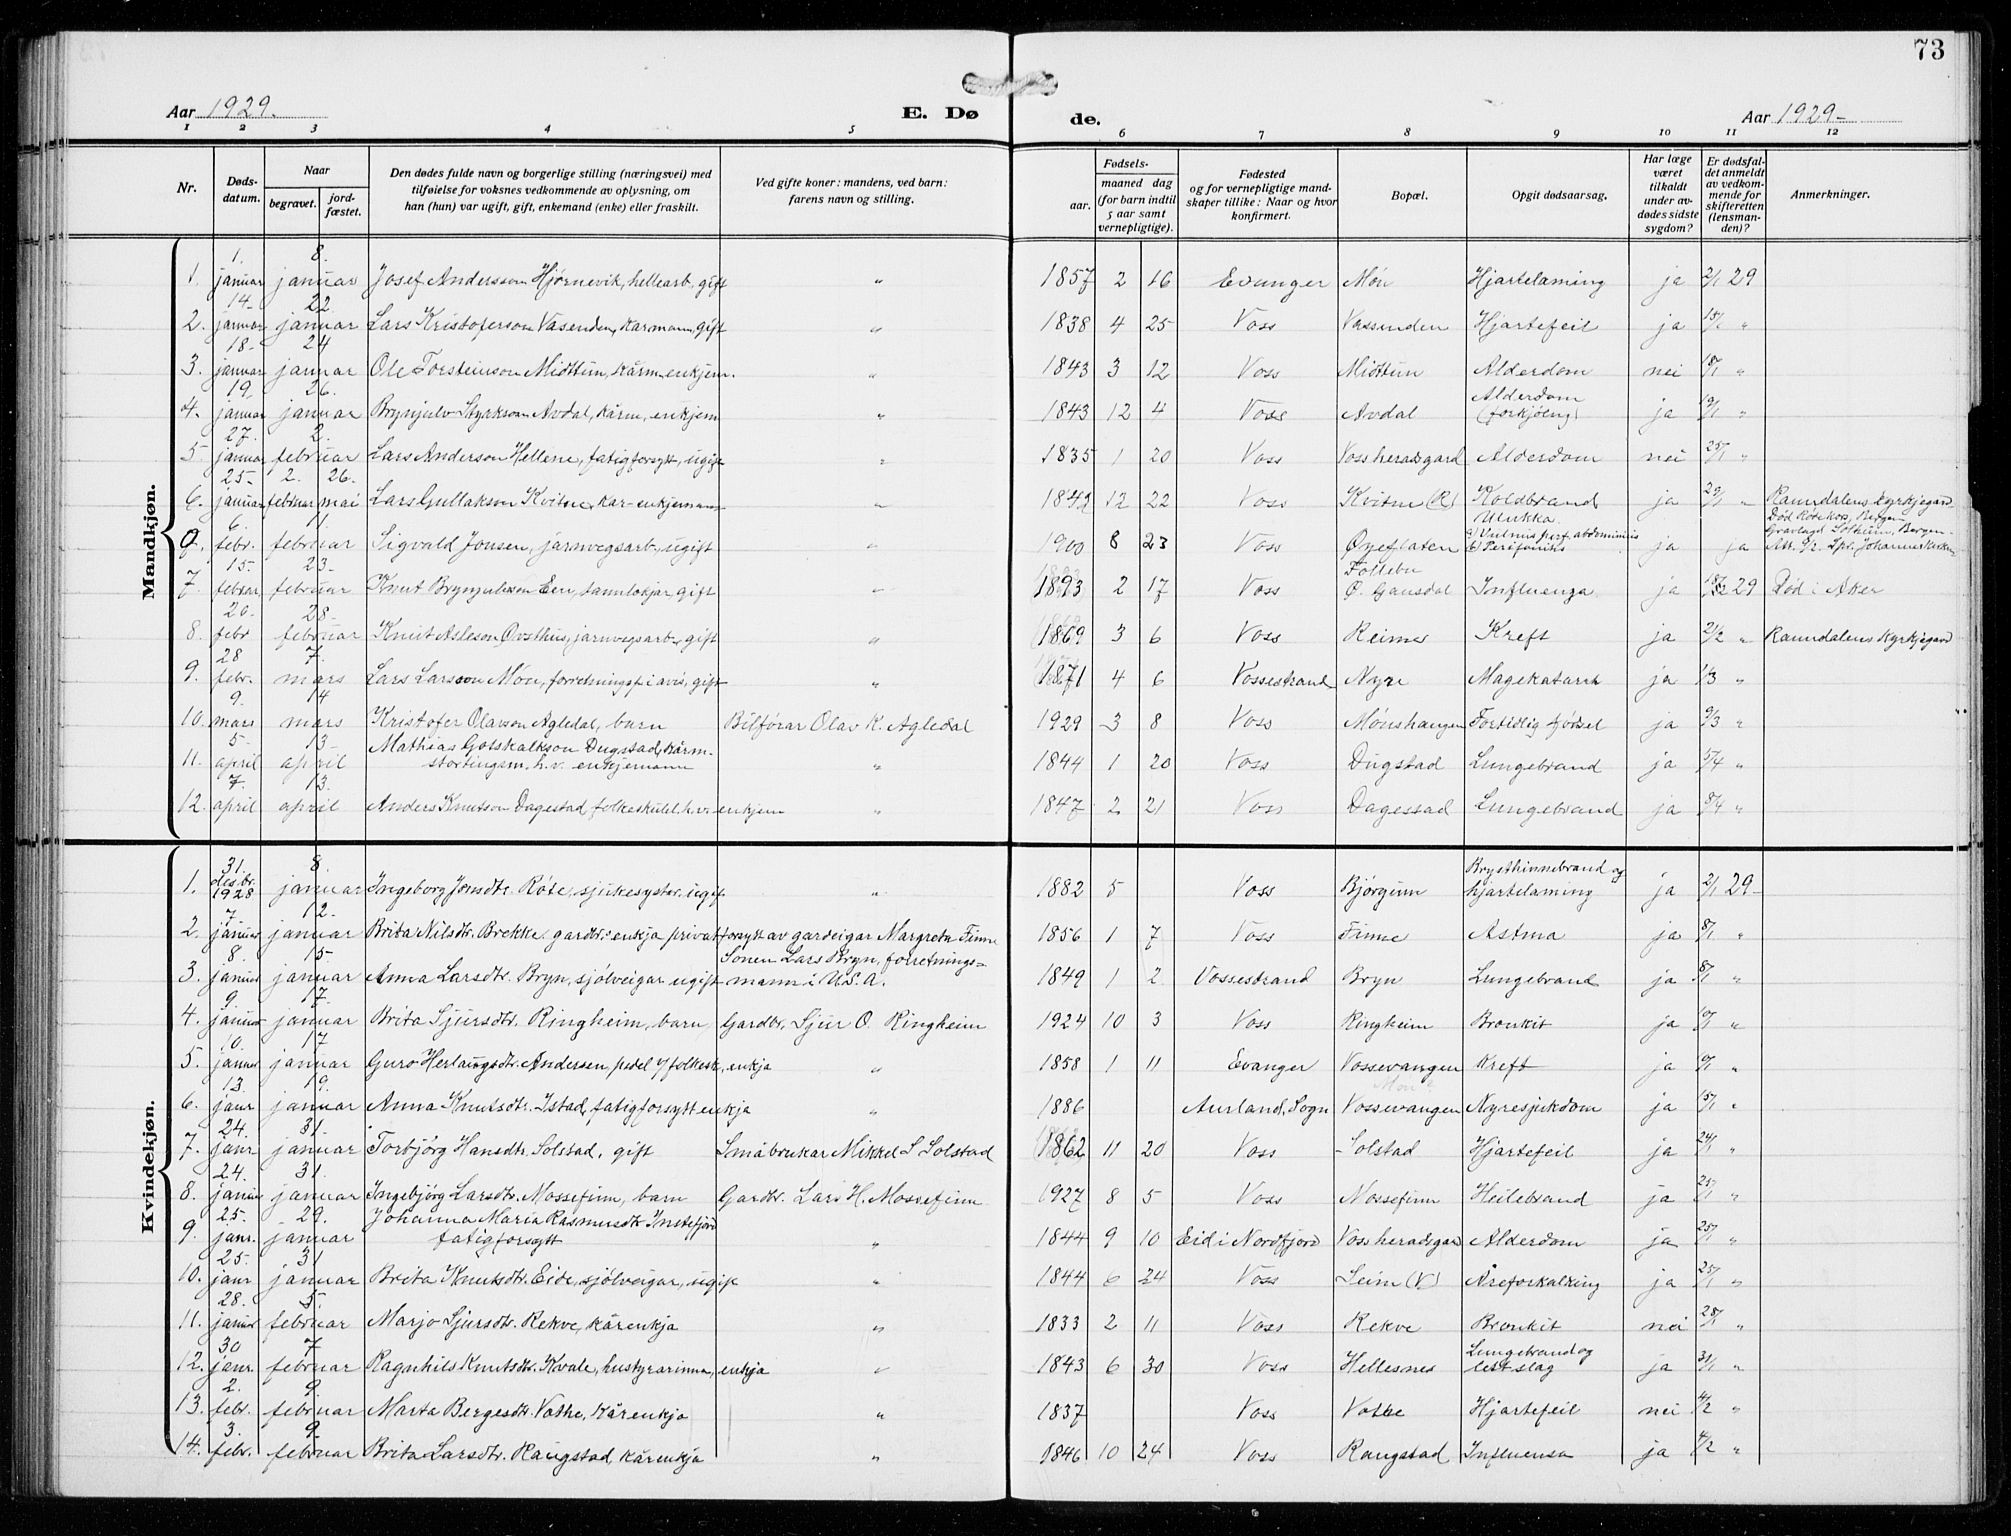 73
Aar 1929.
E. Dø
de.
Aar 1929-
1 2 3 4 5 6 7 8 9 10 11 12
Nr.
Døds-
datum.
Naar
begravet.
jord-
fæstet.
Den dødes fulde navn og borgerlige stilling (næringsvei) med
tilføielse for voksnes vedkommende av oplysning, om
han (hun) var ugift, gift, enkemand (enke) eller fraskilt.
Ved gifte koner: mandens, ved barn:
farens navn og stilling.
Fødsels-
aar.
maaned dag
(for barn indtil
5 aar samt
vernepligtige).
Fødested
og for vernepligtige mand-
skaper tillike: Naar og hvor
konfirmert.
Bopæl.
Opgit dødsaarsag.
Har læge
været
tilkaldt
under av-
dødes sidste
sygdom?
Er dødsfal-
det anmeldt
av vedkom-
mende for
skifteretten
(lensman-
den)?
Anmerkninger.
Mandkjøn.
1. 8.
1. januar januar Josef Andersson Hjørnevik, hellearb, gift " 1857 2 16 Evanger Møn Hjartelaming ja 2/1 29
14- 22
2. januar januar Lars Kristoferson Vasenden, kårmann, gift " 1838 4 25 Voss Vassenden Hjartefeil ja 15/1 "
18- 24
3. januar januar Ole Torsteinson Midttun, kårm. enkjem. " 1843 3 12 Voss Midttun Alderdom nei 18/1 "
19. 26.
4. januar januar Brynjulv Styrkson Avdal, kårm, enkjem " 1843 12 4 Voss Avdal Alderdom (forkjøling) ja 19/1 "
27. 2.
5 januar februar Lars Anderson Hellene, fatigforsytt, ugift " 1835 1 20 Voss Vossheradsgard Alderdom nei 25/1 "
25- 2. 26.
6. januar februar mai Lars Gullakson Kvitne, kår-enkjemann " 1849 12 22 Voss Kvitne (R) Koldbrand ja 29/1 " Raundalens kyrkjegard
6. 1
febr. februar Sigvald Jonsen, jarnvegsarb., ugift " 1900 8 23 Voss Øyeflaten Ulukka a) Vulnus perf. abdominis b) Peritonitis ja ja Død Røde Kors, Bergen Gravlagd Solheim, Bergen
15. 23.
7. februar februar Knut Brynjulvson Een, tannlækjar, gift " 1893 2 17 Voss Follebu Ø. Gausdal Influenza ja 18/2 29 Død i Aker
20. 28.
8. febr februar Knut Asleson Øvsthus, jarnvegsarb., gift " 1869 3 6 Voss Reime Kreft ja 21/2 " Raundalens kyrkjegard
28 7.
9. febr. mars Lars Larsson Møn, forretningsf. i avis, gift " 1871 4 6 Vossestrand Nyre Magekatarrh ja 1/3 "
9. 14
10. mars mars Kristofer Olavson Agledal, barn Bilførar Olav K. Agledal 1929 3 8 Voss Mønshaugen Fortidlig fødsel ja 9/3 "
5. 13-
11. april april Mathias Gotskalkson Dugstad, kårm. stortingsm. h.v. enkjemann " 1844 1 20 Voss Dugstad Lungebrand ja 5/4 "
7. 13.
12. april april Anders Knutson Dagestad, folkeskulel. h.v. enkjem " 1847 2 21 Voss Dagestad Lungebrand ja 8/4 "
Kvindekjøn.
31. 8.
1. desbr. 1928 januar Ingeborg Jonsdtr. Røte, sjukesyster, ugift " 1882 5 Voss Bjørgum Brysthinnebrand og hjartelaming ja 2/1 29-
7 12.
2. januar januar Brita Nilsdtr. Brekke, gardbr. enkja privat forsytt av gardeigar Margreta Finne 1856 1 7 Voss Finne Astma ja 8/1 "
8. 15.
3. januar januar Anna Larsdtr. Bryn, sjølveigar, ugift Sonen Lars Bryn, forretnings= mann i U.S.A. 1849 1 2 Vossestrand Bryn Lungebrand ja 8/1 "
9. 17.
4. januar januar Brita Sjursdtr. Ringheim, barn Gardbr. Sjur O. Ringheim 1924 10 3 Voss Ringheim Bronkit ja 10/1 "
10. 17
5. januar januar Guro Herlaugsdtr. Andersen, pedel v/folkesk, enkja " 1858 1 11 Evanger Vossevangen Kreft ja 10/1 "
13. 19.
6. januar januar Anna Knutsdtr. Istad, fatigforsytt enkja " 1886 Aurland, Sogn Vossevangen Nyresjukdom ja 15/1 "
24. 31.
7. janr. januar Torbjørg Hansdtr. Solstad, gift Småbrukar Mikkel S Solstad 1862 11 20 Voss Solstad Hjartefeil ja 24/1 "
24. 31.
8. januar januar Ingebjørg Larsdtr. Mossefinn, barn Gardbr. Lars H. Mossefinn 1927 8 5 Voss Mossefinn Heilebrand ja 25/1 "
25. 29.
9. janr. januar Johanna Maria Rasmusdtr. Instefjord fatigforsytt " 1844 9 10 Eid i Nordfjord Vossheradsgard Alderdom ja 25/1 "
25. 31
10. janr januar Brita Knutsdtr. Eide, sjølveigar, ugift " 1844 6 24 Voss Seim (V) Åreforkalking ja 25/1 "
28. 5.
11. januar februar Marjo Sjursdtr. Rekve, kårenkja " 1833 2 11 Voss Rekve Bronkit nei 28/1 "
30 7
12. janr. februar Ragnhild Knutsdtr. Kvale, hustyrarinna, enkja " 1843 6 30 Voss Hellesnes Lungebrand og slag ja 31/1 "
2. 9.
13. febr. februar Marta Bergesdtr. Vothe, kårenkja " 1837 Voss Vothe Hjartefeil nei 4/2 "
3. 9.
14. febr. februar Brita Larsdtr. Raugstad, kårenkja " 1846 10 24 Voss Raugstad Influensa ja 4/2 "